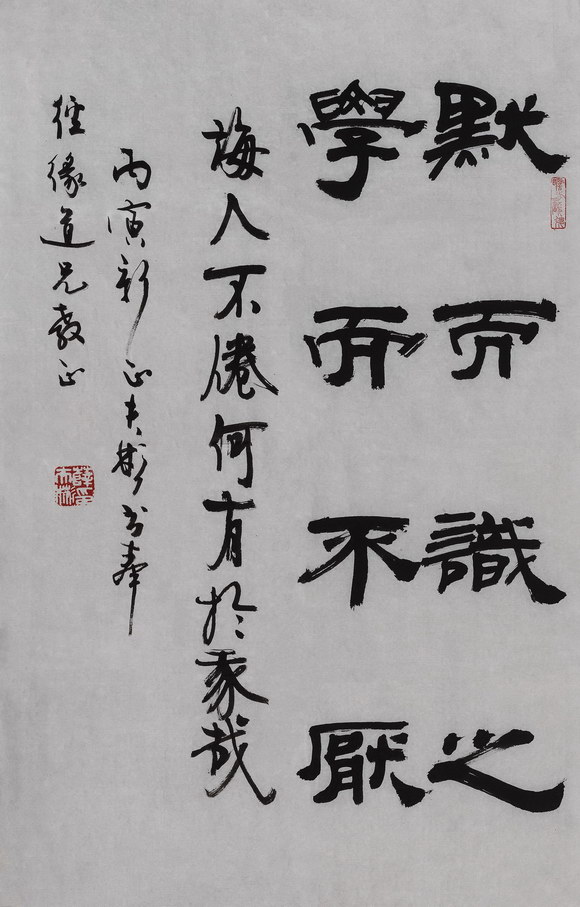 默而識之
學而不厭
誨人不倦何有於我哉
丙寅新正夫彬書奉
道兄教正